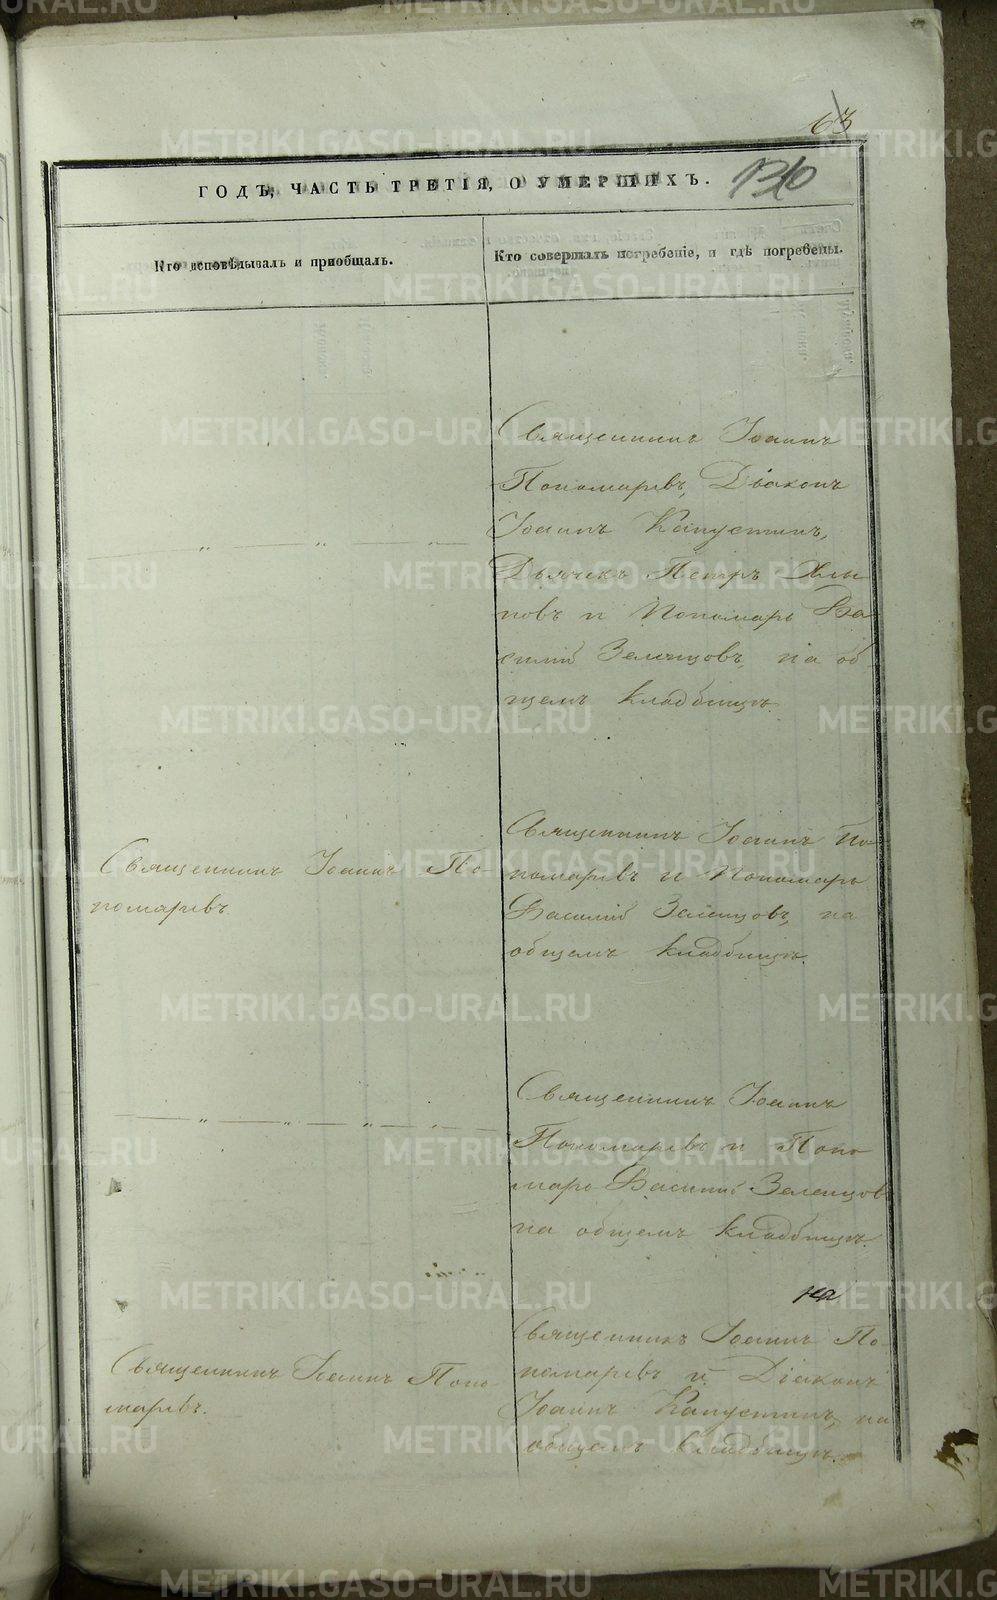 63
ГОДЪ, ЧАСТЬ ТРЕТІЯ, О УМЕРШИХЪ.
Кто исповѣдывалъ и пріобщалъ.
Кто совершалъ погребеніе, и гдѣ погребены.
Священникъ Іоаннъ
Пономаревъ, Діаконъ
Іоаннъ Капустинъ,
Дьячекъ Петръ Хлы-
новъ и Пономарь Ва-
силій Зеленцовъ, на об-
щемъ кладбищѣ.
Священникъ Іоаннъ По-
номаревъ
Священникъ Іоаннъ По-
номаревъ и Пономарь
Василій Зеленцовъ, на
общемъ кладбищѣ.
Священникъ Іоаннъ
Пономаревъ и Поно
марь Василій Зеленцовъ
на общемъ кладбищѣ.
на
Священникъ Іоаннъ Поно
маревъ.
Священникъ Іоаннъ По-
номаревъ и Діаконъ
Іоаннъ Капустинъ, на
общемъ кладбищѣ.
METRIKI.GASO-URAL.RU